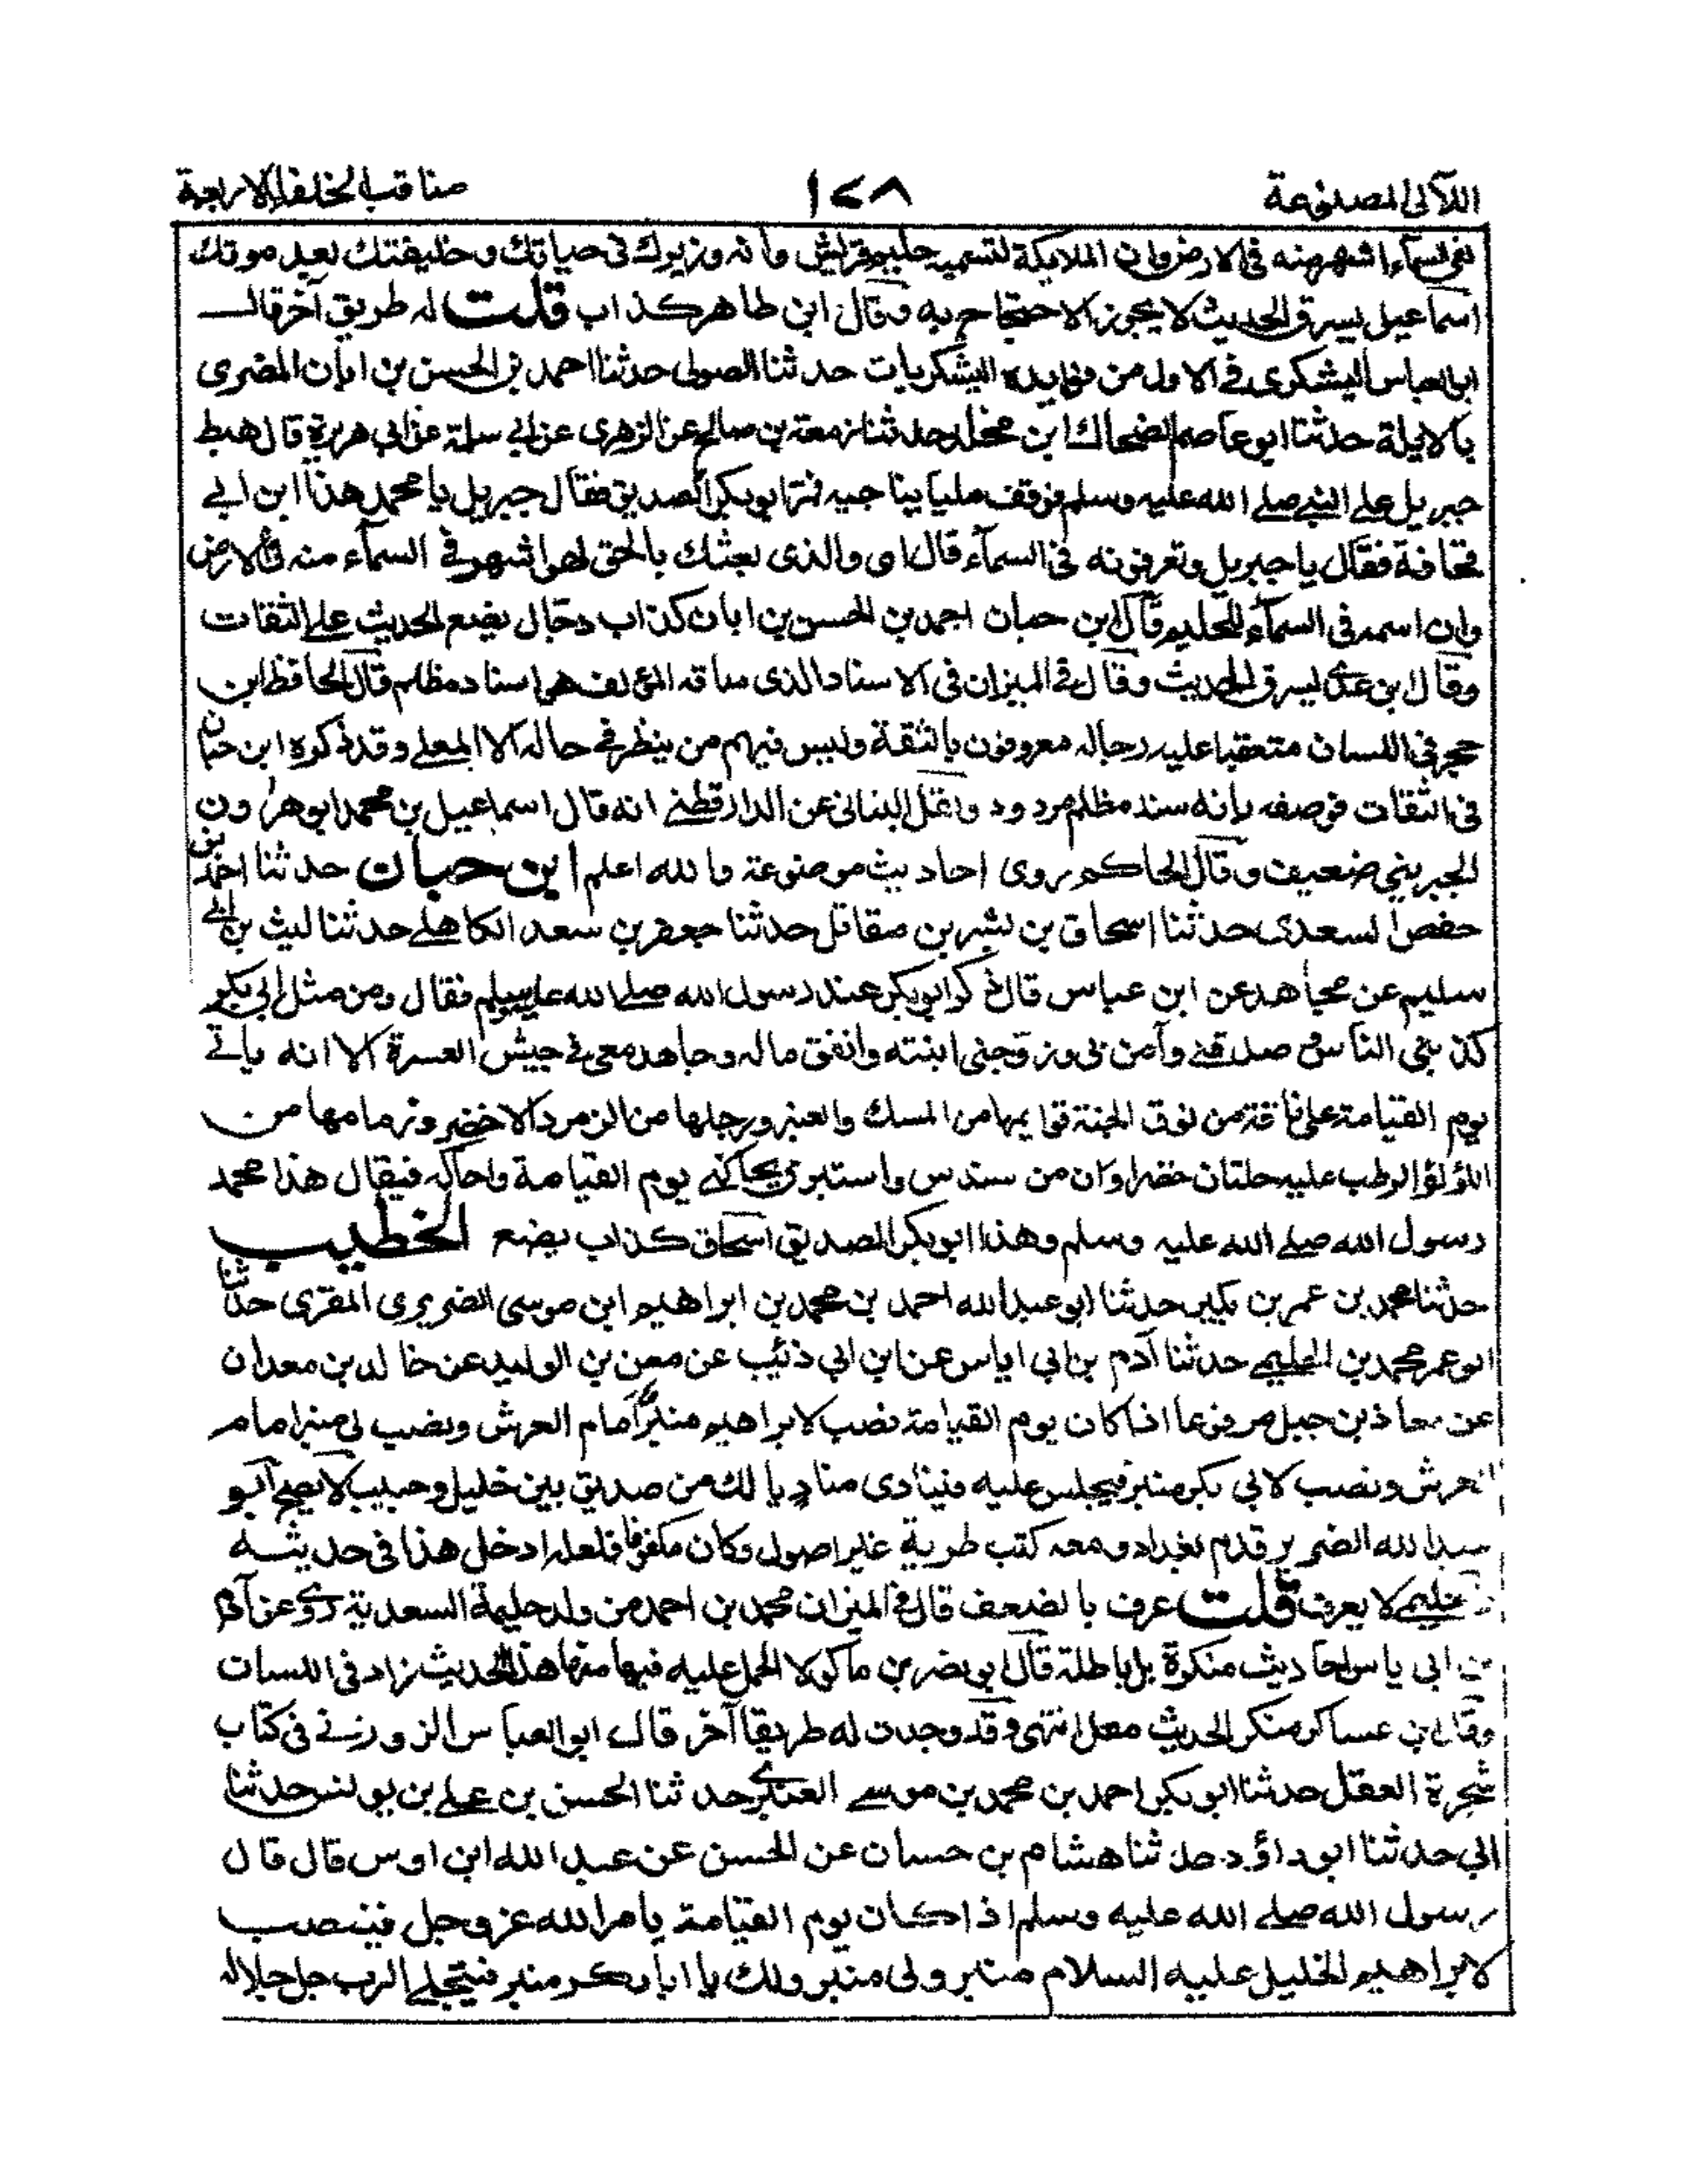 اللآلى المصنوعة ١٧٨ مناقب الخلفاء الاربعة
فى السمآء اشهر منه فى الارض وان الملايكة لتسميه حليم قريش وانه وزيرك فى حياتك وخليفتك بعد موتك
اسماعيل يسرق الحديث لا يجوز الاحتجاج به وقال ابن طاهر كذاب قلت له طريق آخر قال
ابو العباس اليشكرى فى الاول من فوايده اليشكريات حدثنا الصولى حدثنا احمد بن الحسن بن ابان المضرى
بالايلة حدثنا ابو عاصم الضحاك ابن مخلد حدثنا زمعة بن صالح عن الزهرى عن ابى سلمة عن ابى هريرة قال هبط
جبريل على النبى صلى الله عليه وسلم فوقف مليا يناجيه فمر ابو بكر الصديق فقال جبريل يا محمد هذا ابن ابى
قحافة فقال يا جبريل وتعرفونه فى السمآء قال اى والذى بعثك بالحق لهو اشهر فى السمآء منه فى الارض
وان اسمه فى السمآء للحليم قال ابن حبان احمد بن الحسن بن ابان كذاب دجال يضع الحديث على الثقات
وقال ابن عدى يسرق الحديث وقال فى الميزان فى الاسناد الذى ساقه المؤلف هو اسناد مظلم قال الحافظ ابن
حجر فى اللسان متعقبا عليه رجاله معروفون بالثقة وليس فيهم من ينظر فى حاله الا المعلى وقد ذكره ابن حبان
فى الثقات فوصفه بانه سند مظلم مردود ونقل البنانى عن الدارقطنى انه قال اسماعيل بن محمد ابو هرون
الجبرينى ضعيف وقال الحاكم روى احاديث موضوعة والله اعلم ابن حبان حدثنا احمد بن
حفص السعدى حدثنا اسحاق بن بشر بن مقاتل حدثنا جعفر بن سعد الكاهلى حدثنا ليث بن ابى
سليم عن مجاهد عن ابن عباس قال ذكر ابو بكر عند رسول الله صلى الله عليه وسلم فقال ومن مثل ابى بكر
كذبنى الناس وصدقنى وآمن بى وزوجنى ابنته وانفق ماله وجاهد معى فى جيش العسرة الا انه ياتى
يوم القيامة على ناقة من نوق الجنة قوايمها من المسك والعنبر ورجلها من الزمرد الاخضر وزمامها من
اللؤلؤ الرطب عليه حلتان خضراوان من سندس واستبرق يحاكنى يوم القيامة واحاكه فيقال هذا محمد
رسول الله صلى الله عليه وسلم وهذا ابو بكر الصديق اسحاق كذاب يضع الخطيب
حدثنا محمد بن عمر بن بكير حدثنا ابو عبد الله احمد بن محمد بن ابراهيم ابن موسى الضريرى المقرى حدثنا
ابو عمر محمد بن الحليمى حدثنا آدم بن ابى اياس عن ابن ابى ذئيب عن معن بن الوليد عن خالد بن معدان
عن معاذ بن جبل مرفوعا اذا كان يوم القيامة نصب لابراهيم منبر امام العرش ونصب لى منبر امام
العرش ونصب لابى بكر منبر فيجلس عليه فينادى مناد يا لك من صديق بين خليل وحبيب لا يصح ابو
عبد الله الضرير قدم بغداد ومعه كتب طرية غير اصول وكان مكفوفا فلعله ادخل هذا فى حديثه
حليمى لا يعرف قلت عرف بالضعف قال فى الميزان محمد بن احمد من ولد حليمة السعدية روى عن آدم
بن ابى ياس احاديث منكرة بل باطلة قال ابو نصر بن ماكولا الحمل عليه فيها منها هذا الحديث زاد فى اللسان
وقال ابن عساكر منكر الحديث مقل انتهى وقد وجدت له طريقا آخر قال ابو العباس الزوزنى فى كتاب
شجرة العقل حدثنا ابو بكر احمد بن محمد بن موسى العنبرى حدثنا الحسن بن على بن يونس حدثنا
ابى حدثنا ابو داؤد حدثنا هشام بن حسان عن الحسن عن عبد الله ابن اوس قال قال
رسول الله صلى الله عليه وسلم اذا كان يوم القيامة يامر الله عز وجل فينصب
لابراهيم الخليل عليه السلام منبر ولى منبر ولك يا ابا بكر منبر فيتجلى الرب جل جلاله